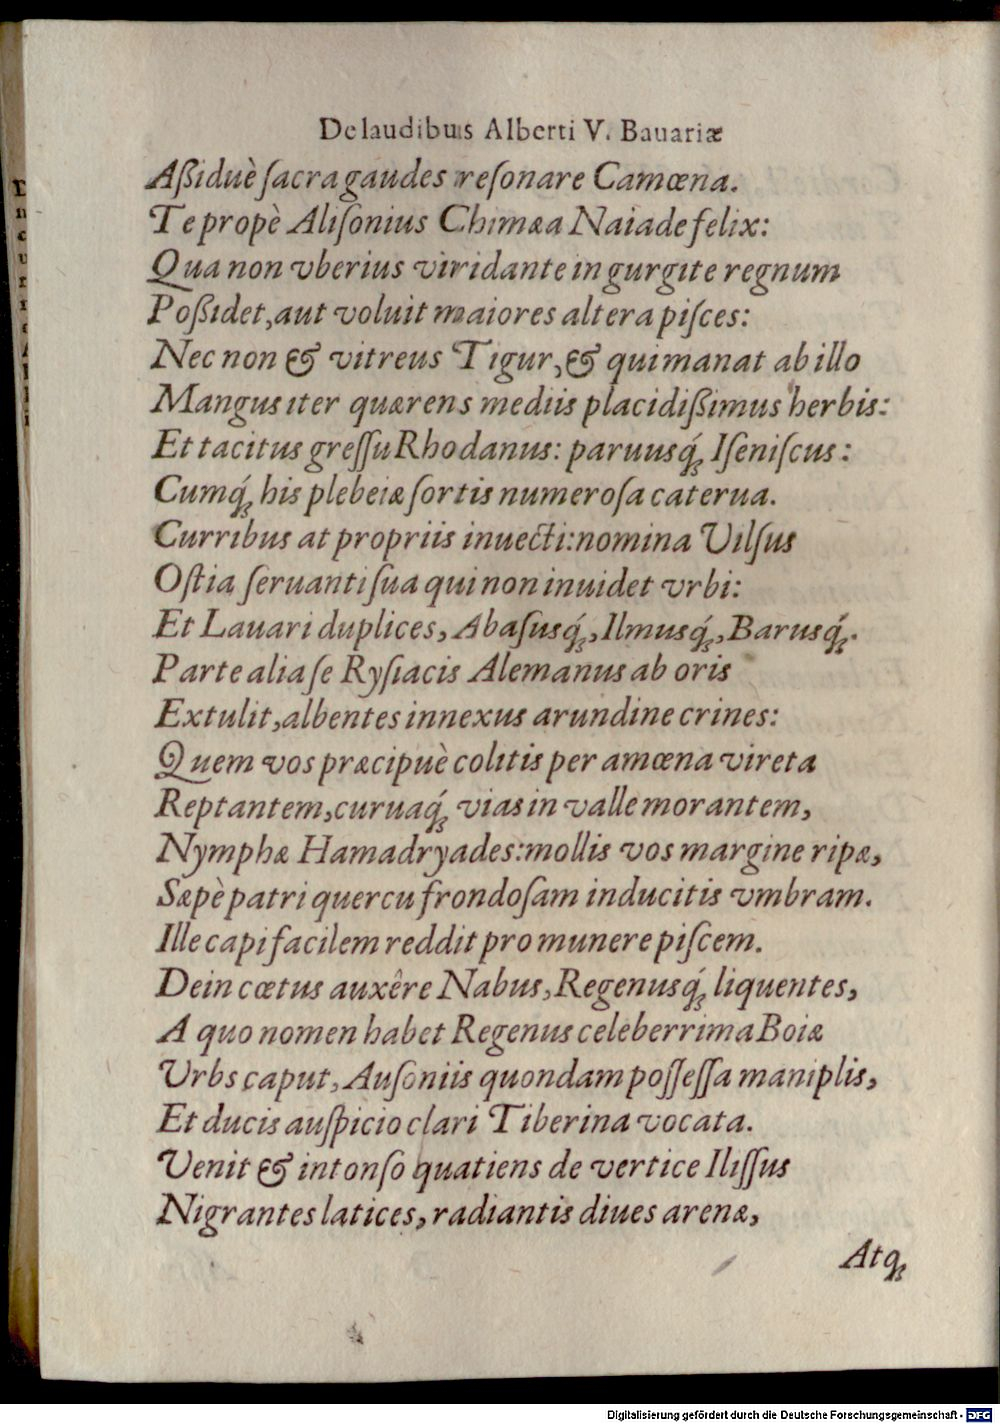 De laudibus Alberti V. Bauariæ
Aßiduè ſacra gaudes reſonare Camœna.
Te propè Aliſonius Chimæa Naiade felix:
Qua non vberius viridante in gurgite regnum
Poßidet, aut voluit maiores altera piſces:
Nec non & vitreus Tigur, & qui manat ab illo
Mangus iter quærens mediis placidißimus herbis:
Et tacitus greſſu Rhodanus: paruusq́; Iſeniſcus:
Cumq́; his plebeiæ ſortis numeroſa caterua.
Curribus at propriis inuecti: nomina Vilſus
Oſtia ſeruanti ſua qui non inuidet vrbi:
Et Lauari duplices, Abaſusq́;, Ilmusq́;, Barusq́;.
Parte alia ſe Ryſiacis Alemanus ab oris
Extulit, albentes innexus arundine crines:
Quem vos præcipuè colitis per amœna vireta
Reptantem, curuaq́; vias in valle morantem,
Nymphæ Hamadryades: mollis vos margine ripæ,
Sæpè patri quercu frondoſam inducitis vmbram.
Ille capi facilem reddit pro munere piſcem.
Dein cœtus auxêre Nabus, Regenusq́; liquentes,
A quo nomen habet Regenus celeberrima Boiæ
Vrbs caput, Auſoniis quondam poſſeſſa maniplis,
Et ducis auſpicio clari Tiberina vocata.
Venit & intonſo quatiens de vertice Iliſſus
Nigrantes latices, radiantis diues arenæ,
Atq;
Digitalisierung gefördert durch die Deutsche Forschungsgemeinschaft - DFG